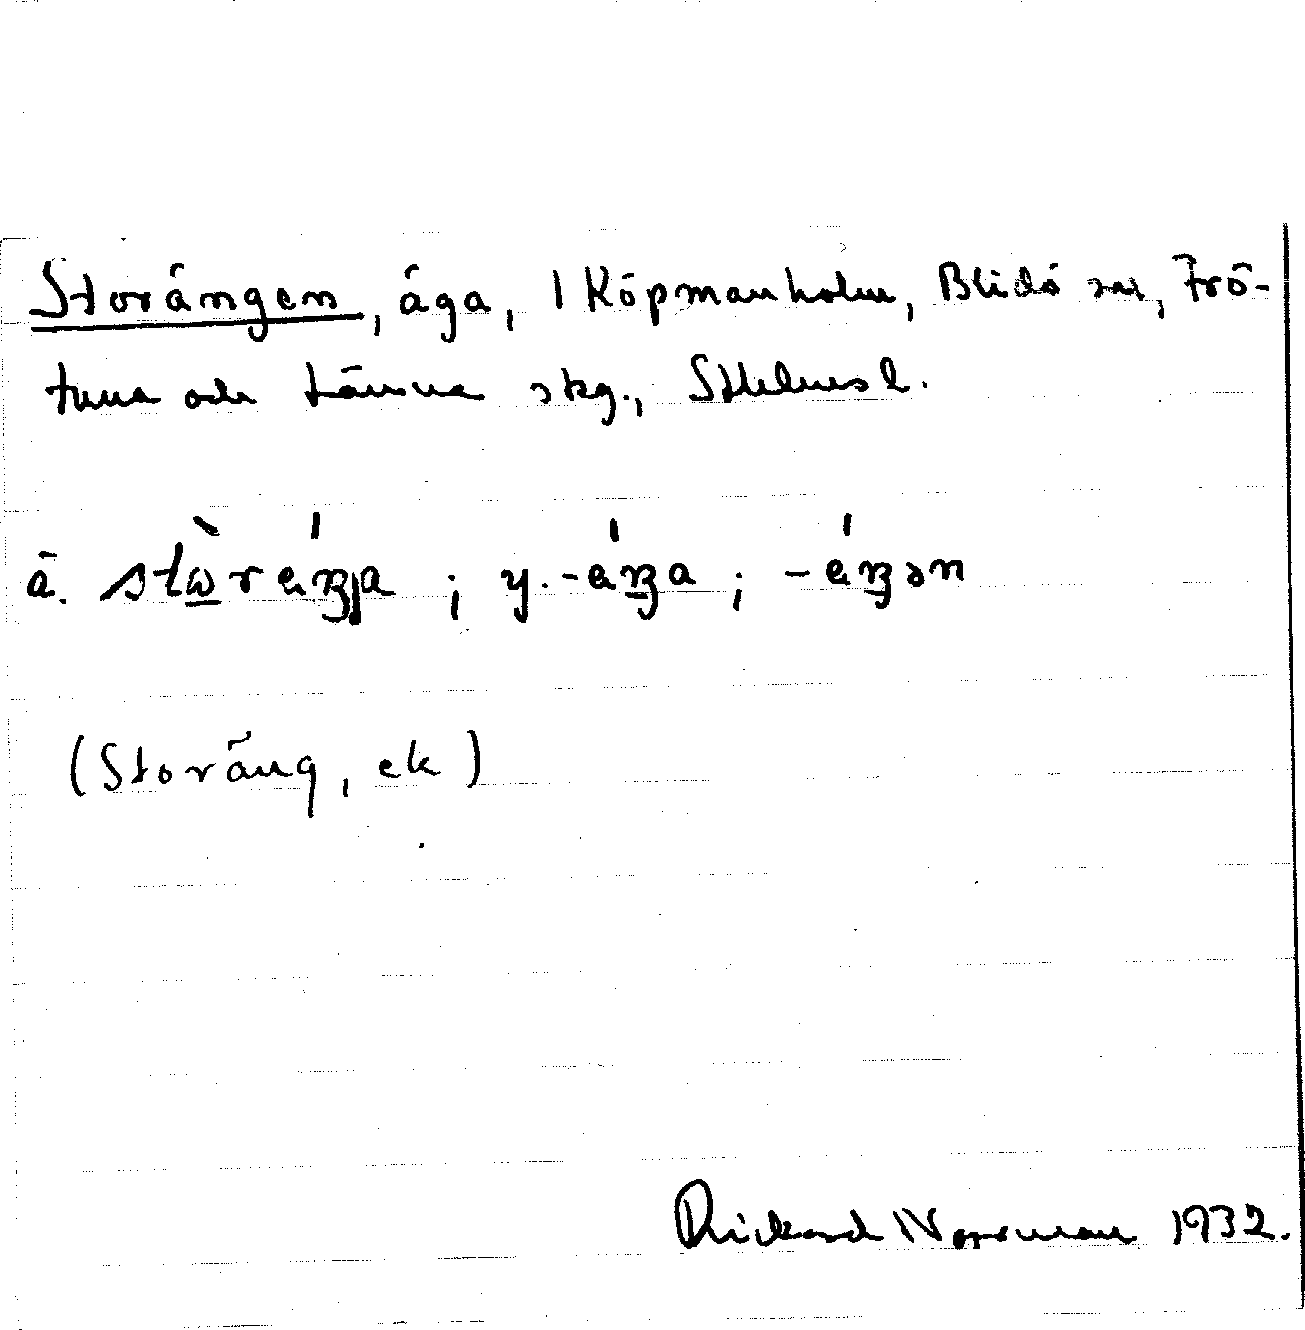 Storängen, äga, 1 Köpmanholm, Blidö sn, Frö-
tuna och Länna skg., Sthlms l.
ä. stὼreŋ́ja ; y. -éŋa ; -éŋən
(Storäng, ek)
Rickard Norrman 1932.